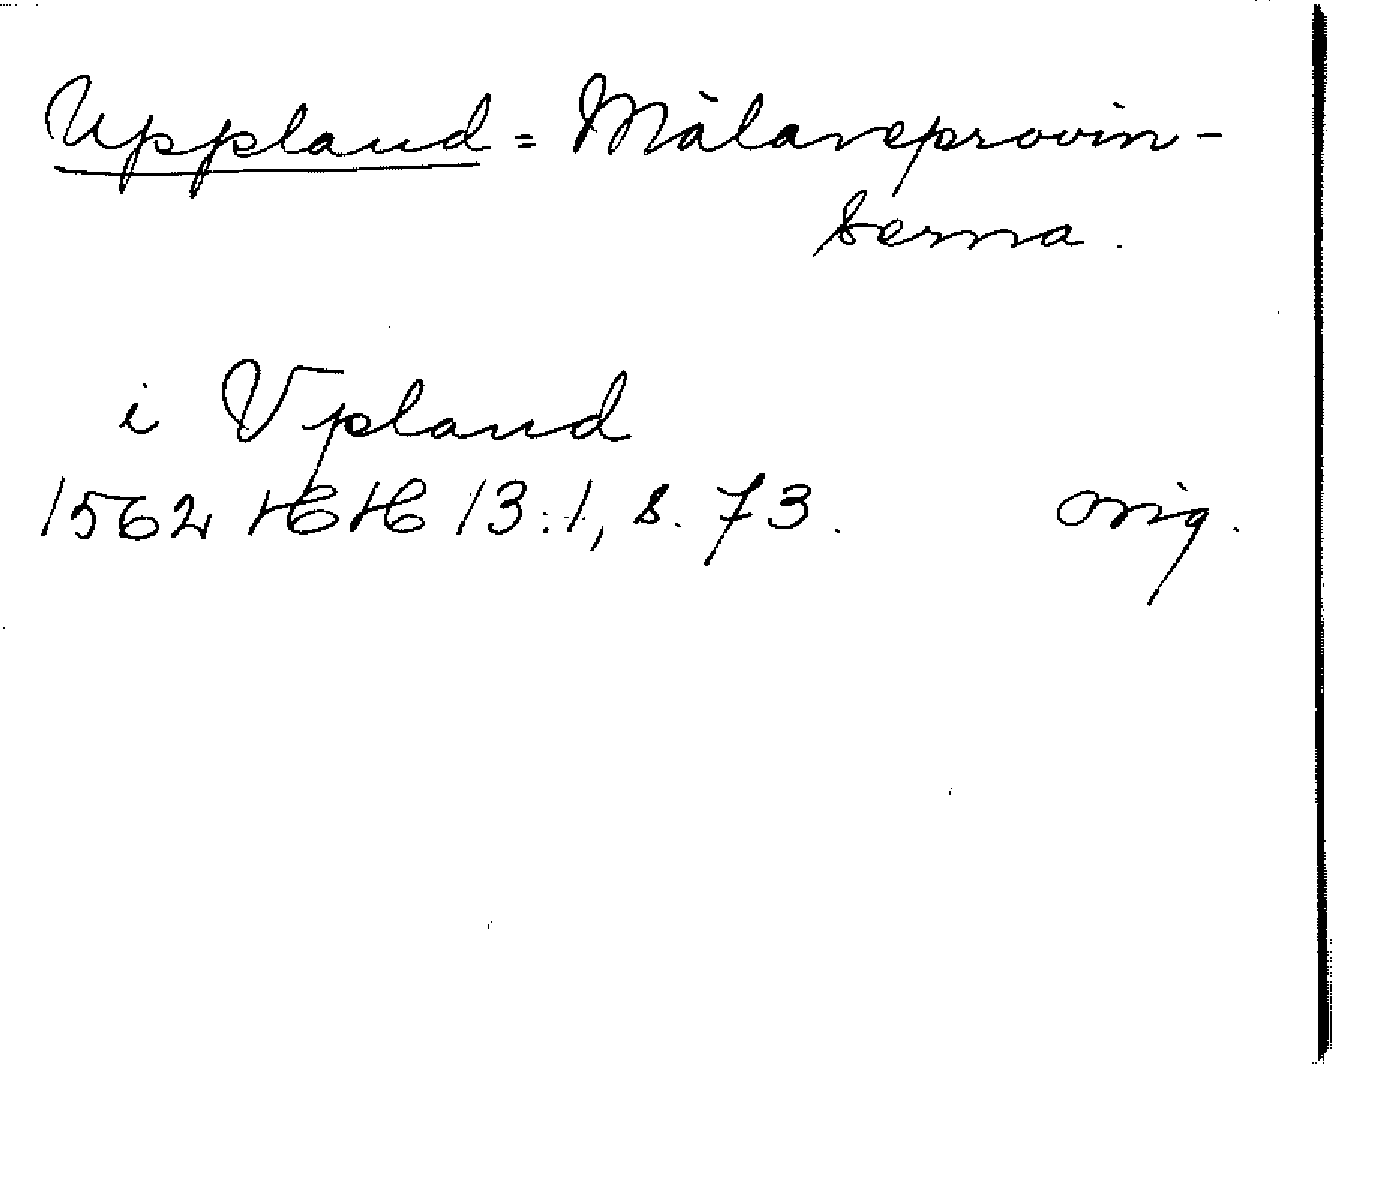 Uppland = Mälareprovin-
serna.
i Vpland
1562 HH 13:1, s. 73. orig.